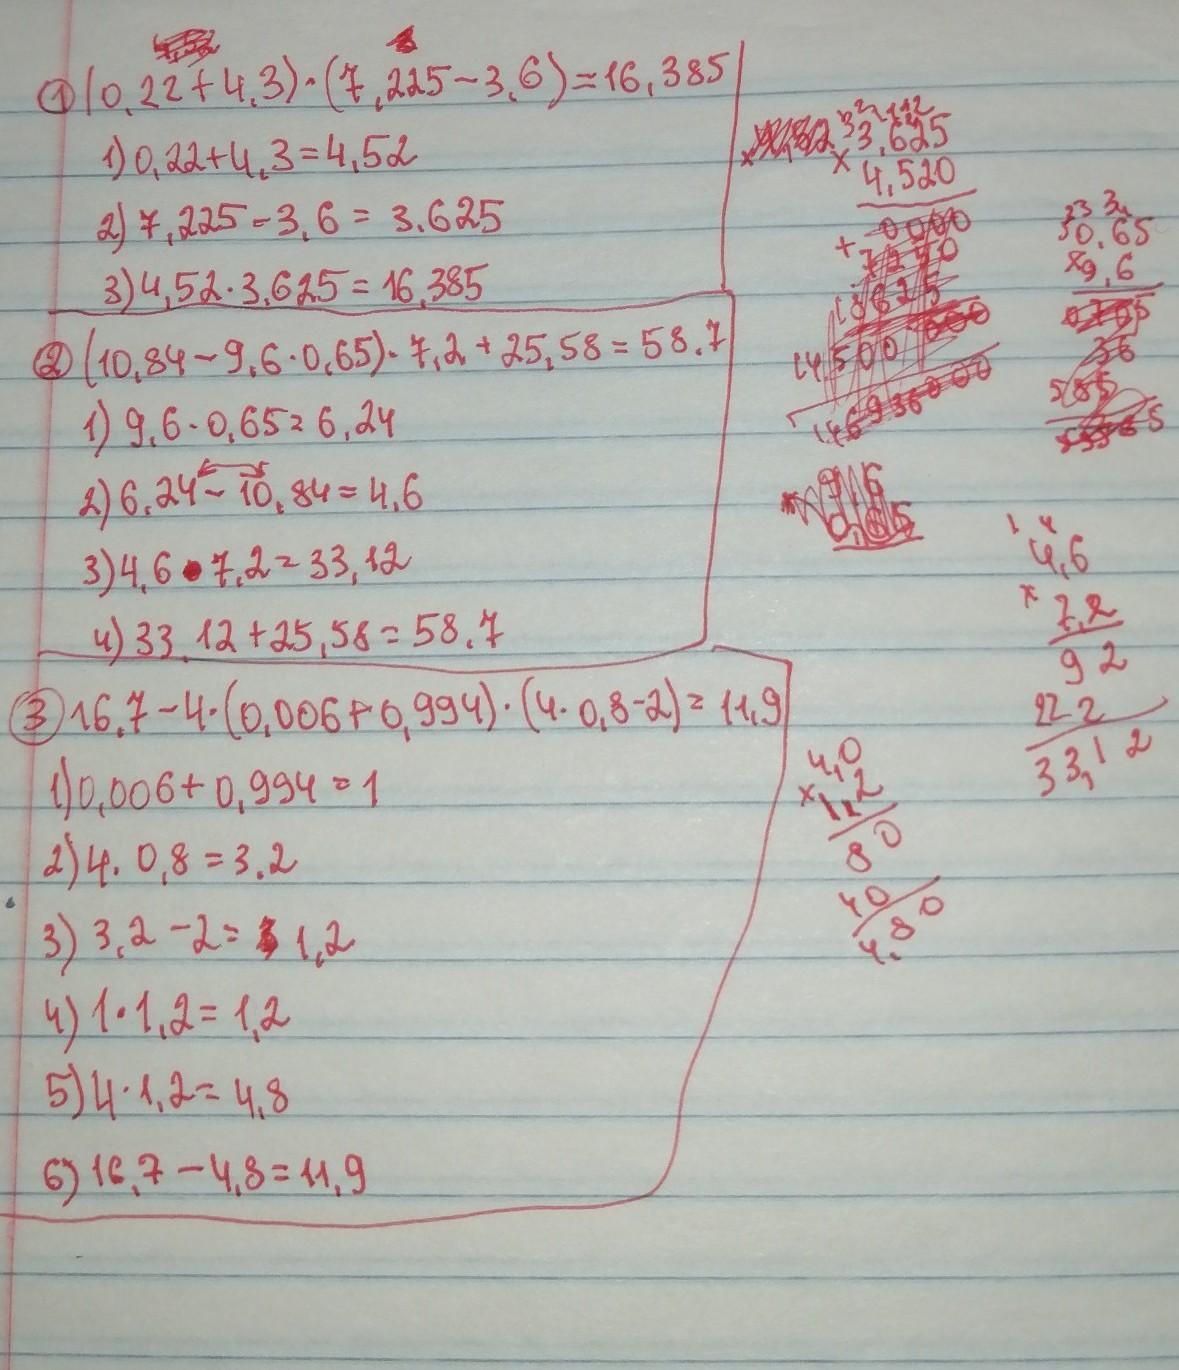 ① (0,22+4,3)·(7,225-3,6)=16,385
1) 0,22+4,3=4,52
2) 7,225-3,6=3.625
3) 4,52·3,625=16,385
② (10,84-9,6·0,65)·7,2+25,58=58.7
1) 9,6·0,65=6,24
2) 6,24-10,84=4,6
3) 4,6·7,2=33,12
4) 33,12+25,58=58.7
③ 16,7-4·(0,006+0,994)·(4·0,8-2)=11,9
1) 0,006+0,994=1
2) 4·0,8=3.2
3) 3,2-2=1,2
4) 1·1,2=1,2
5) 4·1,2=4,8
6) 16,7-4,8=11,9
3,625
×4,520
0,65
×9,6
4,6
×7,2
92
322
33,12
4,0
×1,2
80
40
4.80